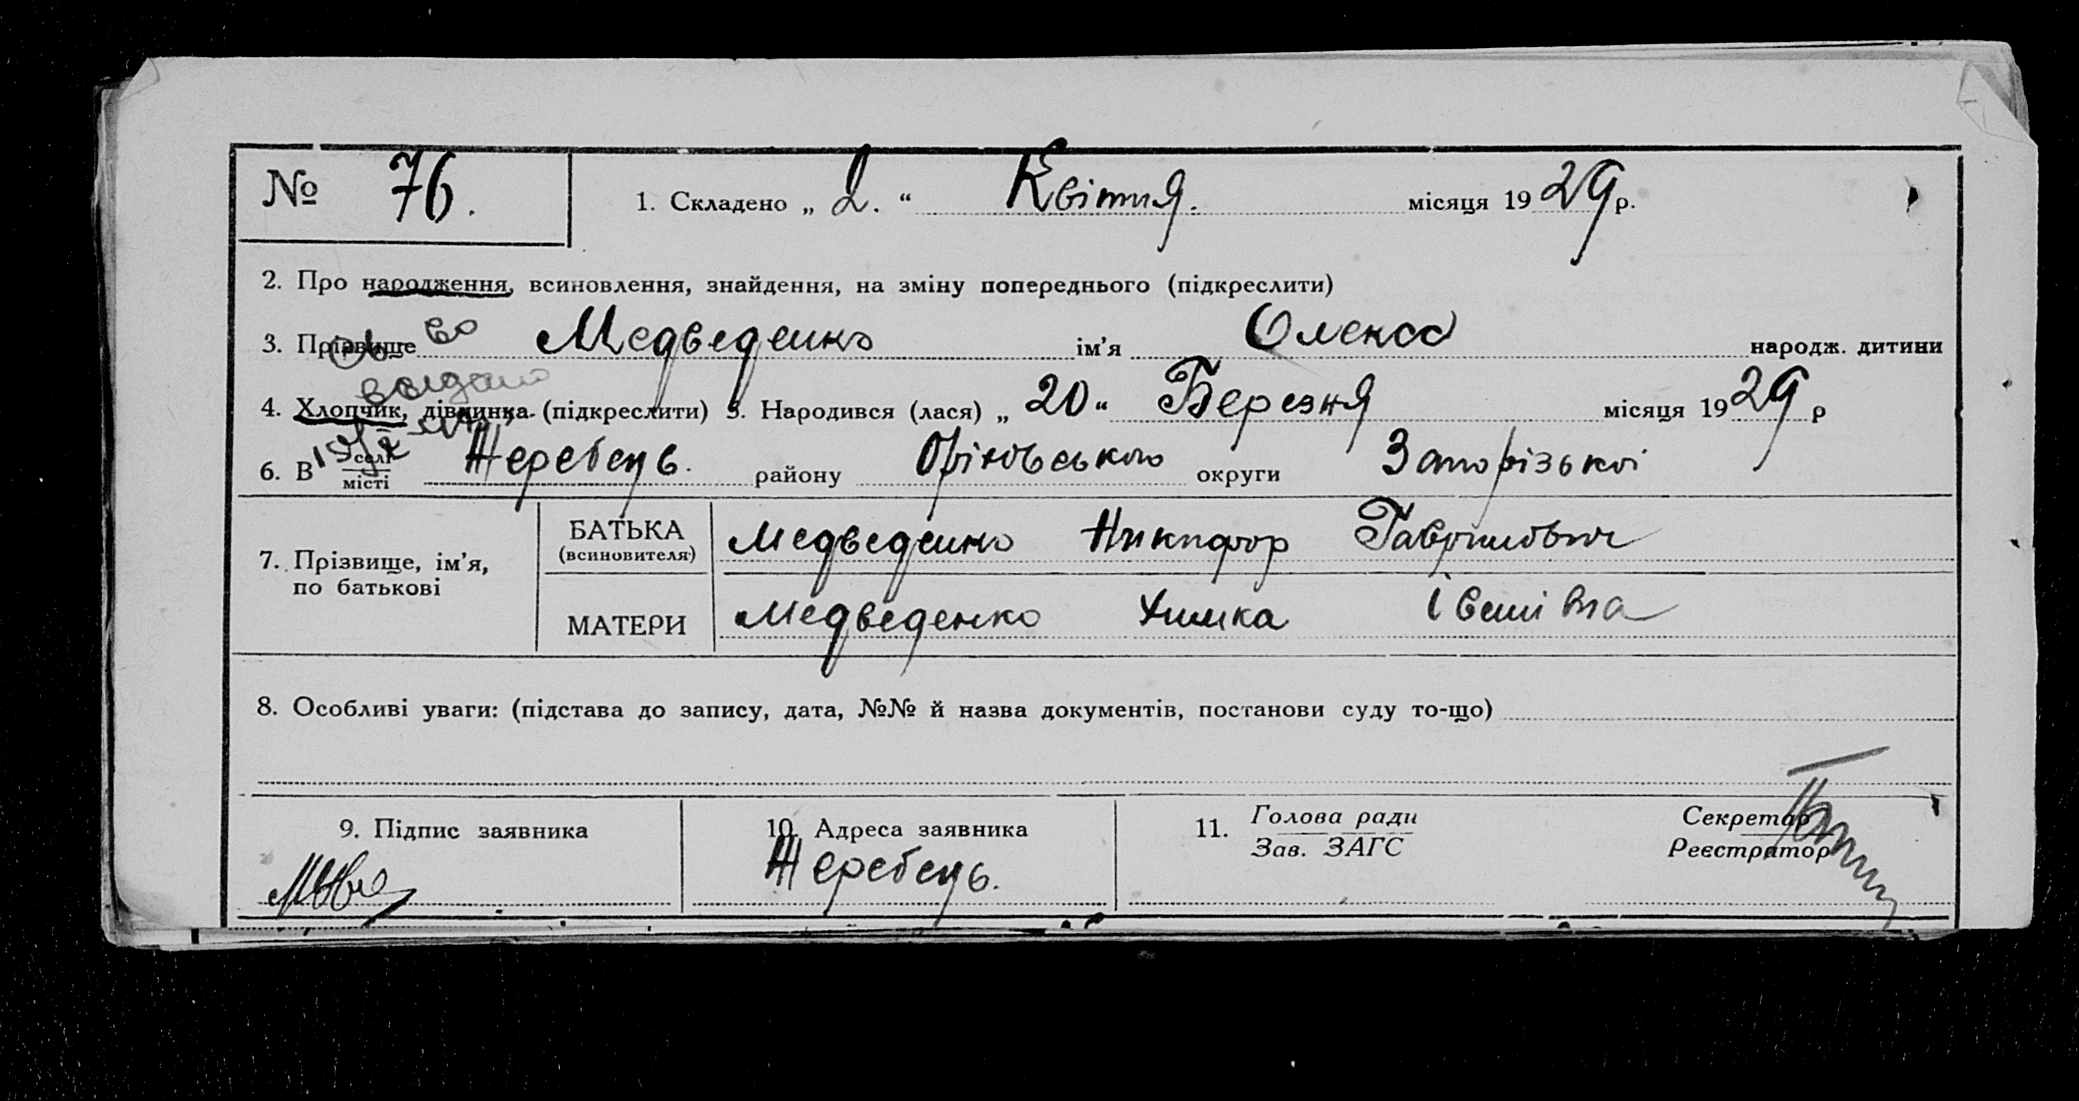 № 76. 1. Складено „ 2. “ Квітня. місяця 1929 р.
2. Про народження, всиновлення, знайдення, на зміну попереднього (підкреслити)
3. Прізвище Медведенко ім’я Олекса народж. дитини
видано
4. Хлопчик, дівчинка (підкреслити) 5. Народився (лася) „ 20 “ Березня місяця 1929 р
6. В селі місті Жеребець. району Оріхівського округи Запорізької
7. Прізвище, ім’я, по батькові
БАТЬКА (всиновителя) Медведенко Никифор Гаврилович
МАТЕРИ Медведенко Химка Іванівна
8. Особливі уваги: (підстава до запису, дата, №№ й назва документів, постанови суду то-що)
9. Підпис заявника
10. Адреса заявника
Жеребець.
11. Голова ради Секретар
Зав. ЗАГС Реєстратор